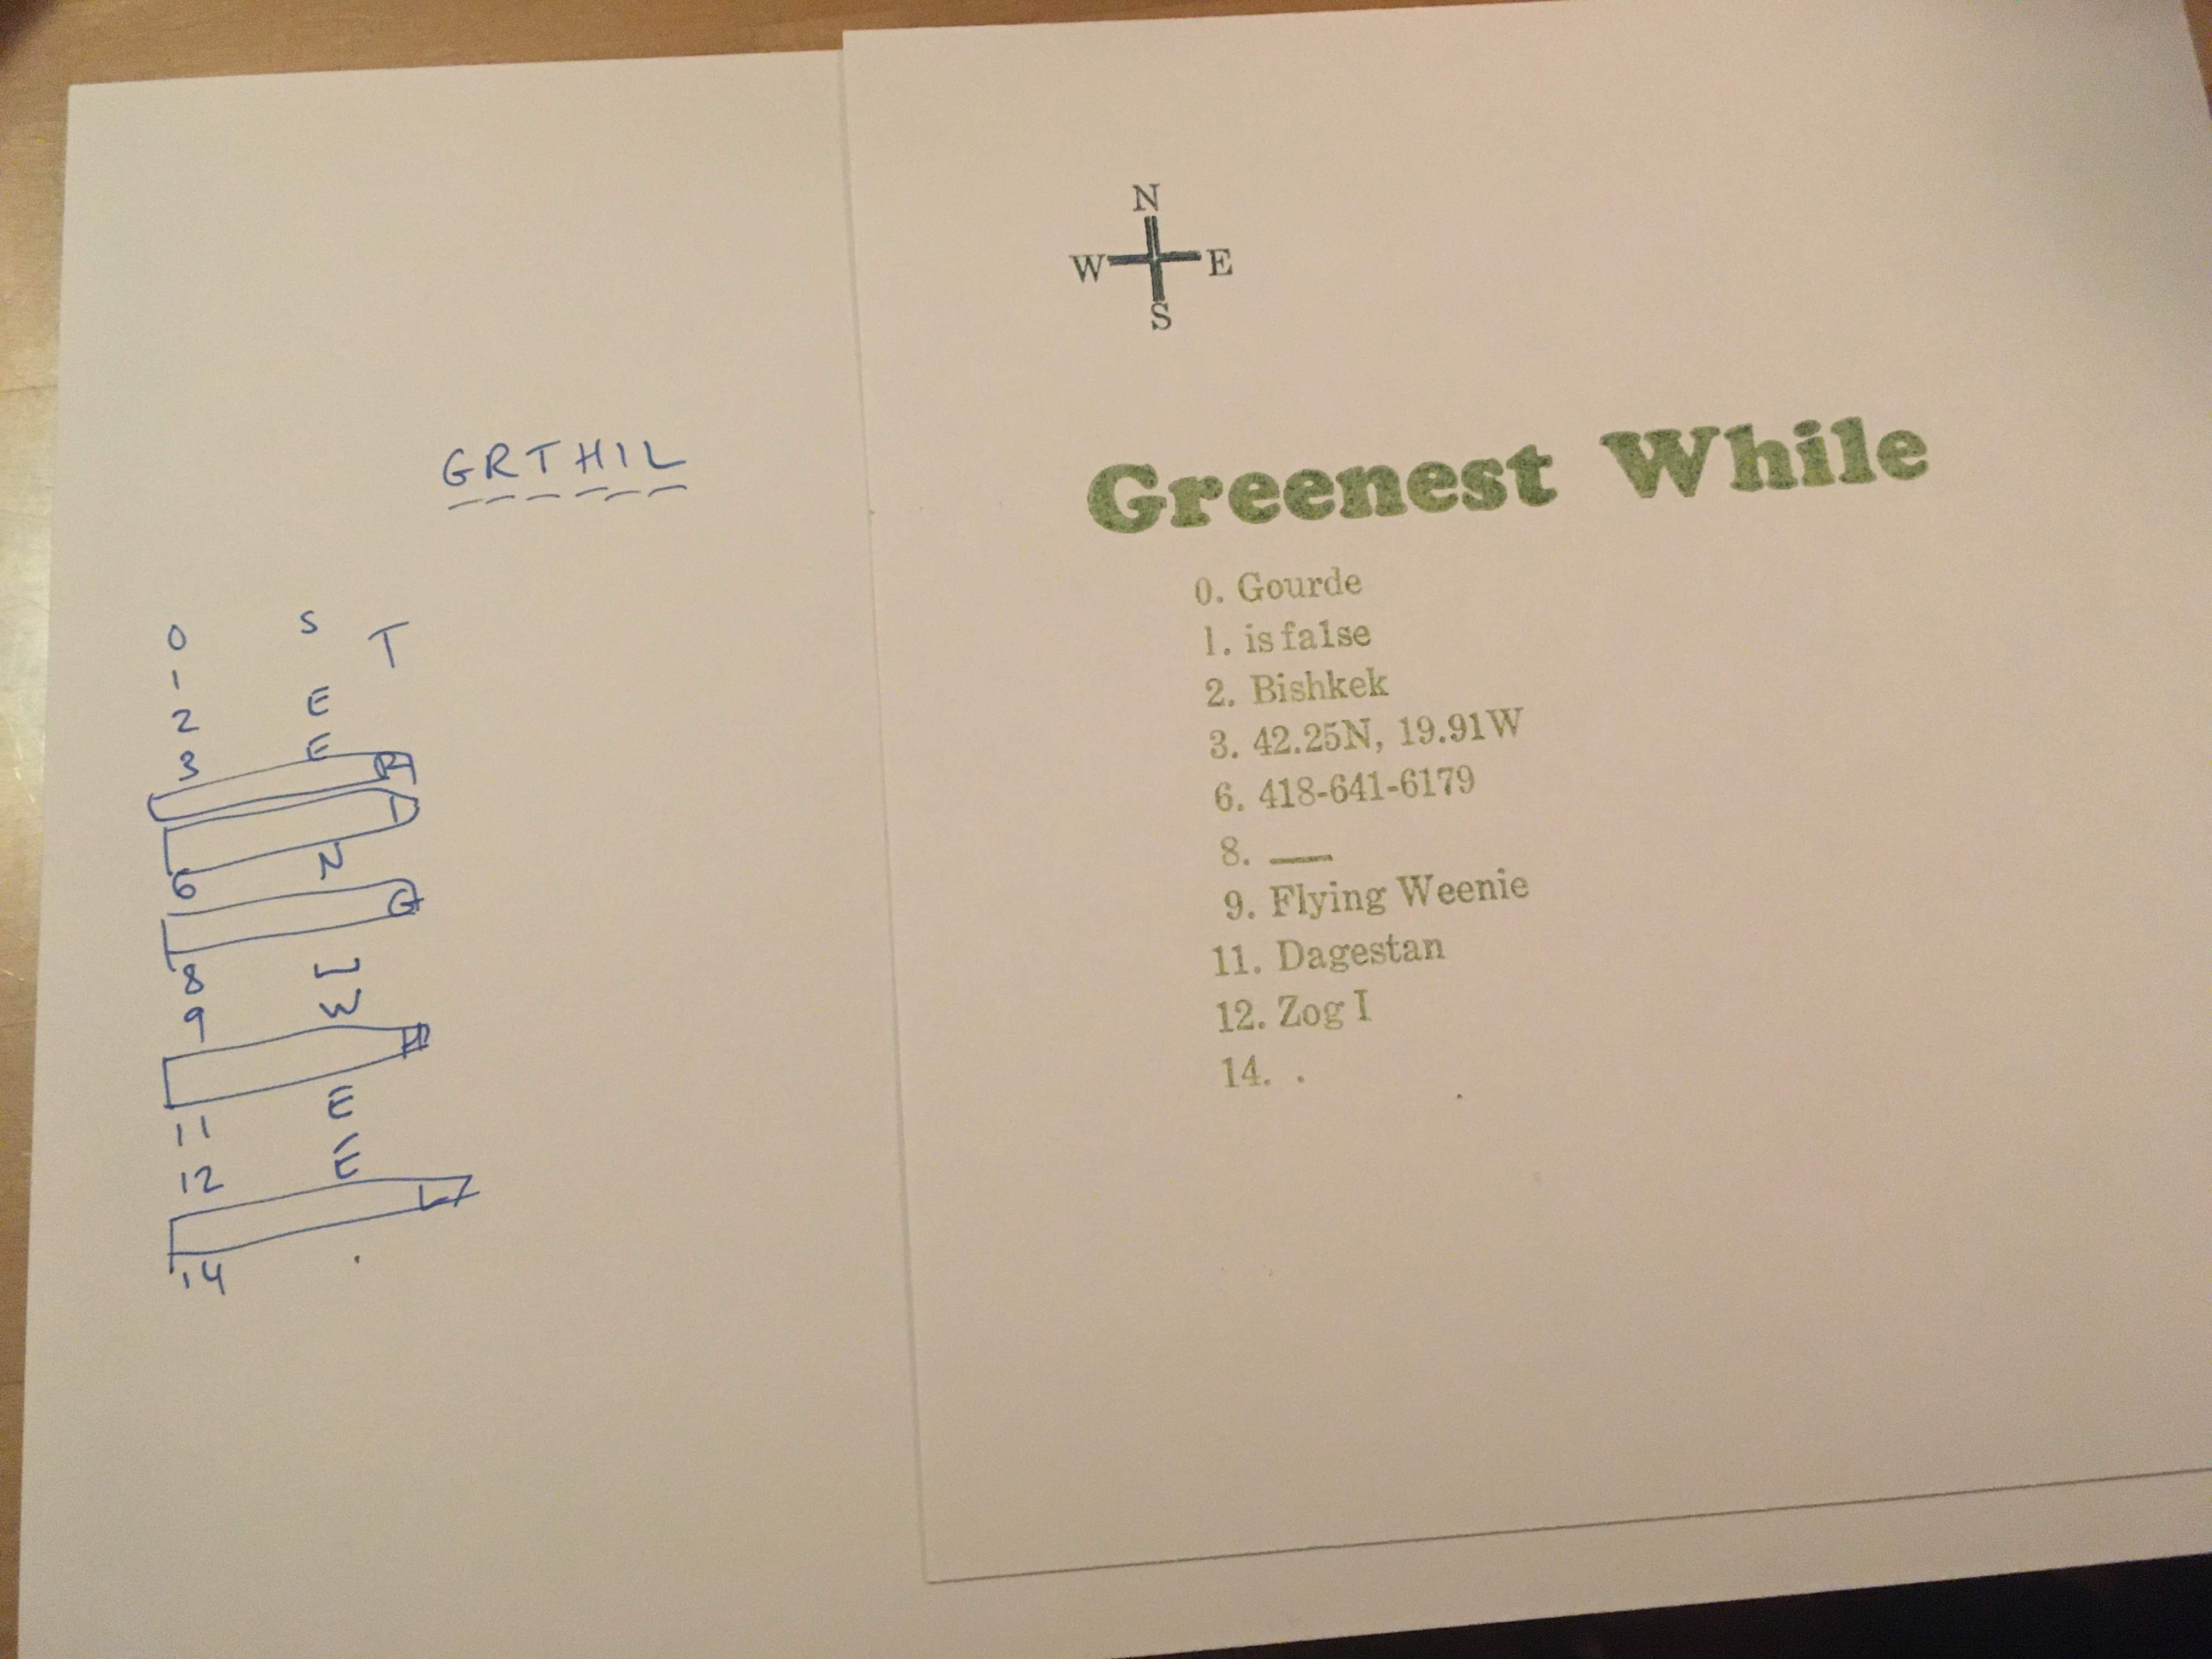 GRTHIL
0 S T
1
2 E
3 E
R
I
6 N
G
8
9 W
H
11 E
12 E
L
14 .
N
W E
S
Greenest While
0. Gourde
1. is false
2. Bishkek
3. 42.25N, 19.91W
6. 418-641-6179
8. __
9. Flying Weenie
11. Dagestan
12. Zog I
14. .